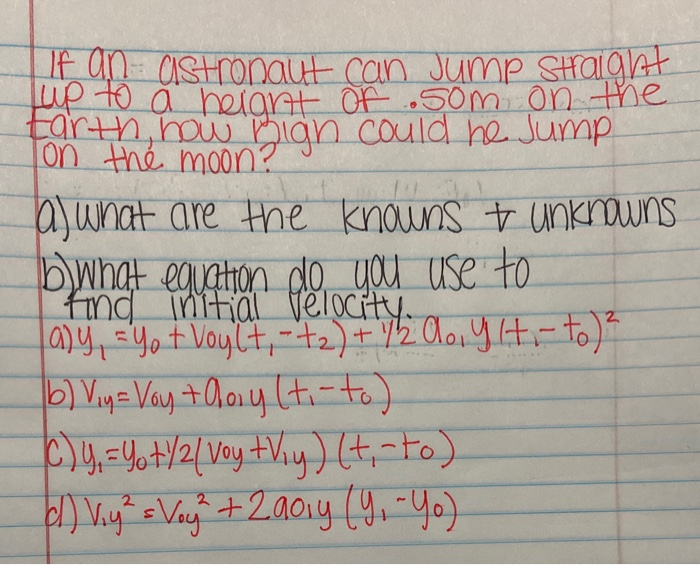 If an astronaut can Jump straight
up to a height of .50m on the
Earth, how high could he Jump
on the moon?
a) what are the knowns + unknowns
b) what equation do you use to
find initial velocity.
a) y₁ = y₀ + v₀y(t₁-t₂) + 1/2 a₀₁y(t₁-t₀)²
b) V₁y = V₀y + a₀₁y (t₁-t₀)
c) y₁ = y₀ + 1/2 (v₀y + V₁y) (t₁-t₀)
d) V₁y² = V₀y² + 2a₀₁y (y₁-y₀)